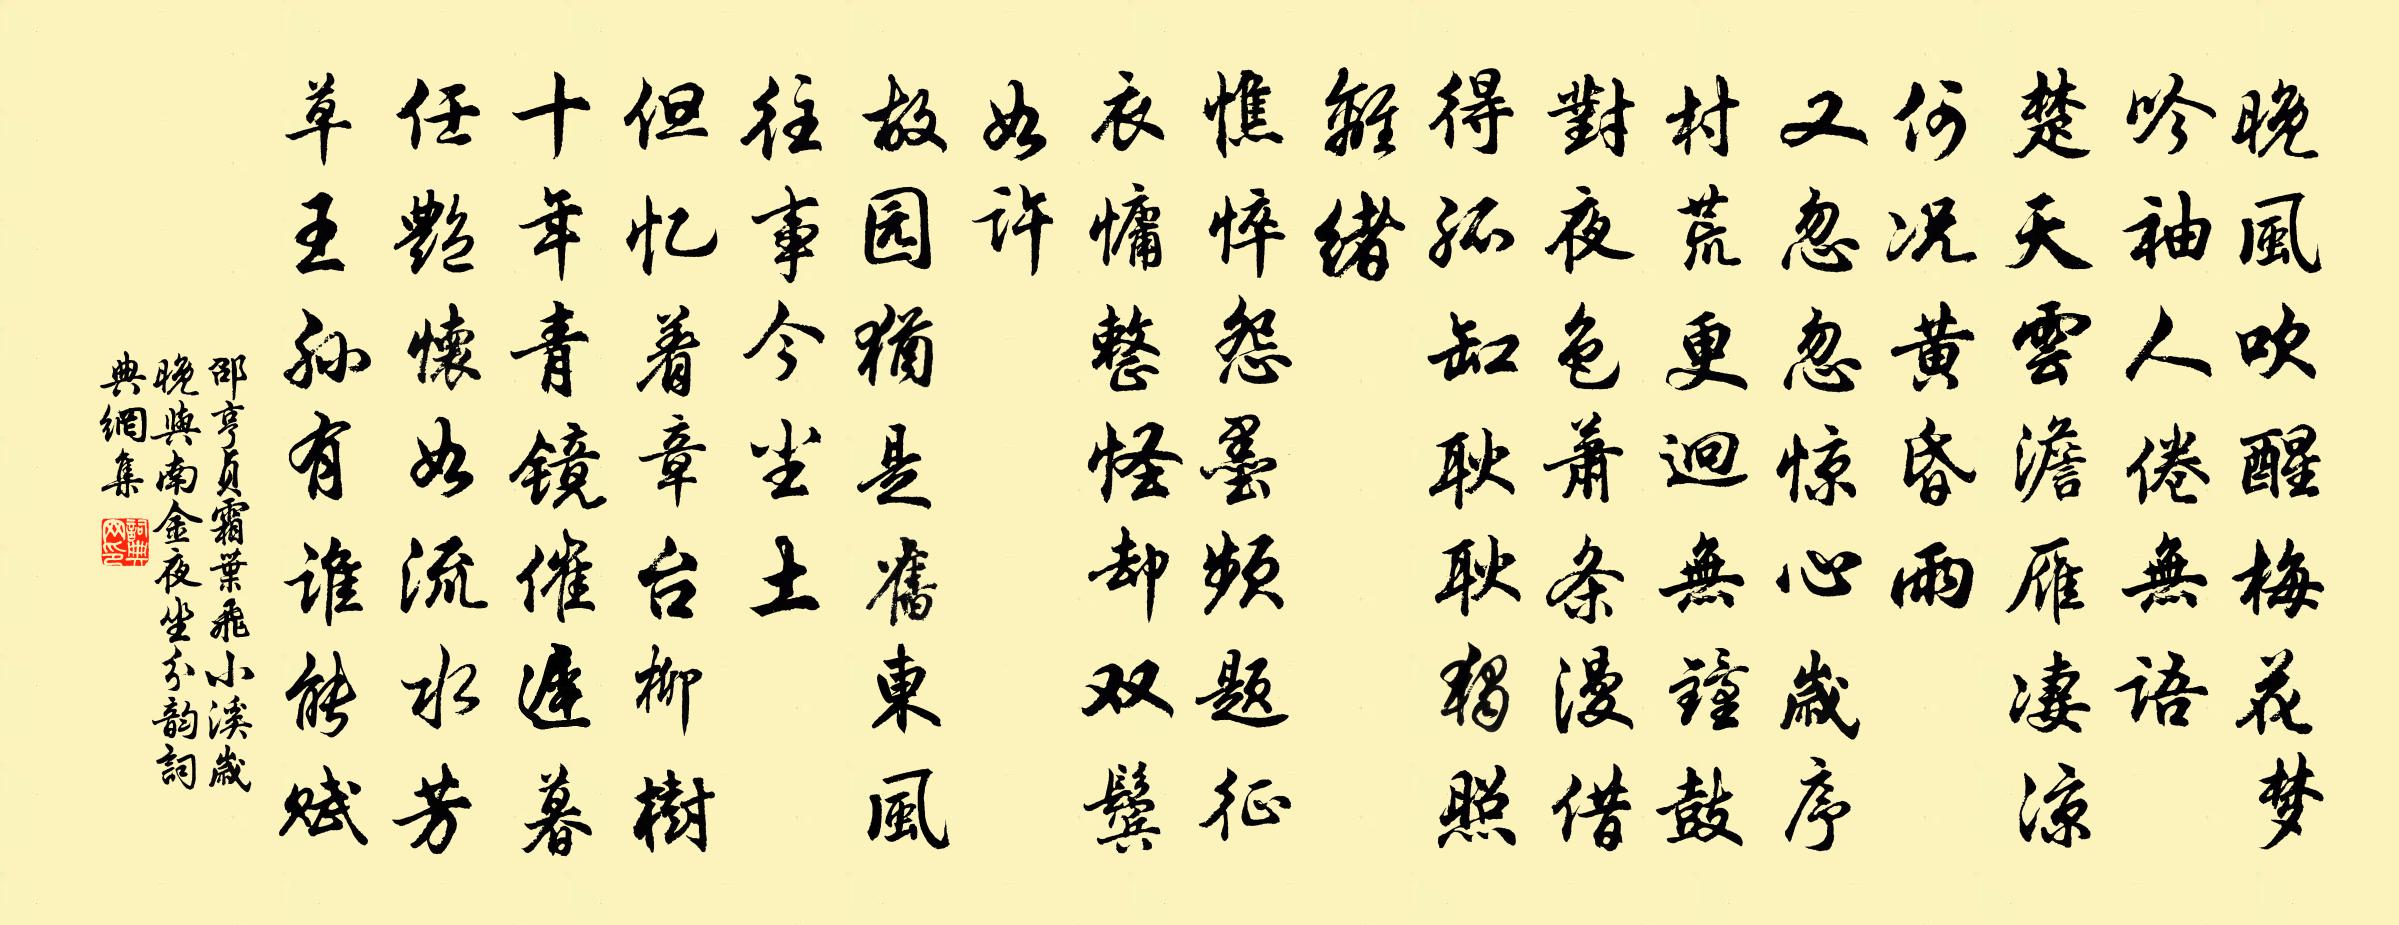 晚風吹醒梅花梦
吟袖人倦無語
楚天雲澹雁凄凉
何况黄昏雨
又忽忽惊心歲序
村荒更迥無鐘鼓
對夜色萧条漫借
得孤缸耿耿独照
離緒
憔悴怨墨频题征
衣慵整怪却双鬓
如许
故园猶是舊東風
往事今尘土
但忆着章台柳樹
十年青镜催遲暮
任艷懷如流水芳
草王孙有谁能赋
邵亨贞霜葉飛小溪歲
晚與南金夜坐分韵詞
典網集
詞典网印